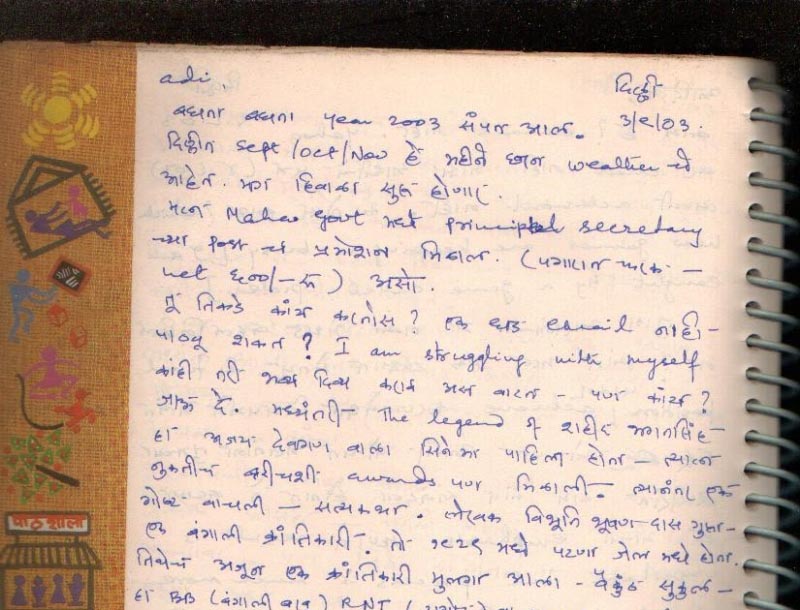 adi,
दिल्ली
३/९/०३.
बघता बघता year २००३ संपत आलं.
दिल्लीत Sept/Oct/Nov हे महिने छान weather चे
आहेत. मग हिवाळा सुरू होणार.
मला Mahar Govt मधे principal secretary
च्या post चं प्रमोशन मिळालं. (पगारात फरक —
net ६००/-रु) असो.
तू तिकडे काय करतोस? एक धड email नाही
पाठवू शकत? I am struggling with myself
कांही तरी भव्य दिव्य करावं असं वाटतं - पण काय?
जाऊ दे. मध्यंतरी The legend of शहीद भगतसिंह-
हा अजय देवगण वाला सिनेमा पाहिला होता - त्याला
नुकतीच बरीचशी awards पण मिळाली. त्यानंतर एक
गोष्ट वाचली - सत्यकथा. लेखक विभूति भूषण दास गुप्ता-
एक बंगाली क्रांतिकारी. तो १९२९ मधे पटणा जेल मधे होता.
तिथेच अजून एक क्रांतिकारी मुलगा आला - वैकुंठ सुकुल -
हा BB (बंगाली बाबू) RNT
पाठशाला